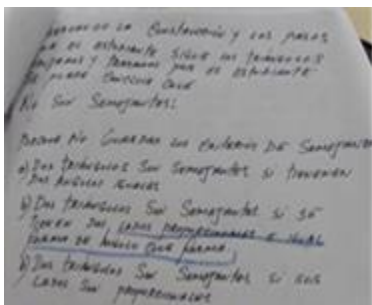 la construcción y los pasos
que el estudiante sigue los triángulos
y por el estudiante
se puede concluir que
No Son Semejantes:
Porque No Guardan los Criterios De Semejanza
a) Dos triángulos Son Semejantes si tienenen
Dos Angulos iguales
b) Dos triángulos Son Semejantes si se
tienen Dos lados proporcionales e igual
forma de Angulo que forma
b) Dos triángulos Son Semejantes si sus
lados Son proporcionales